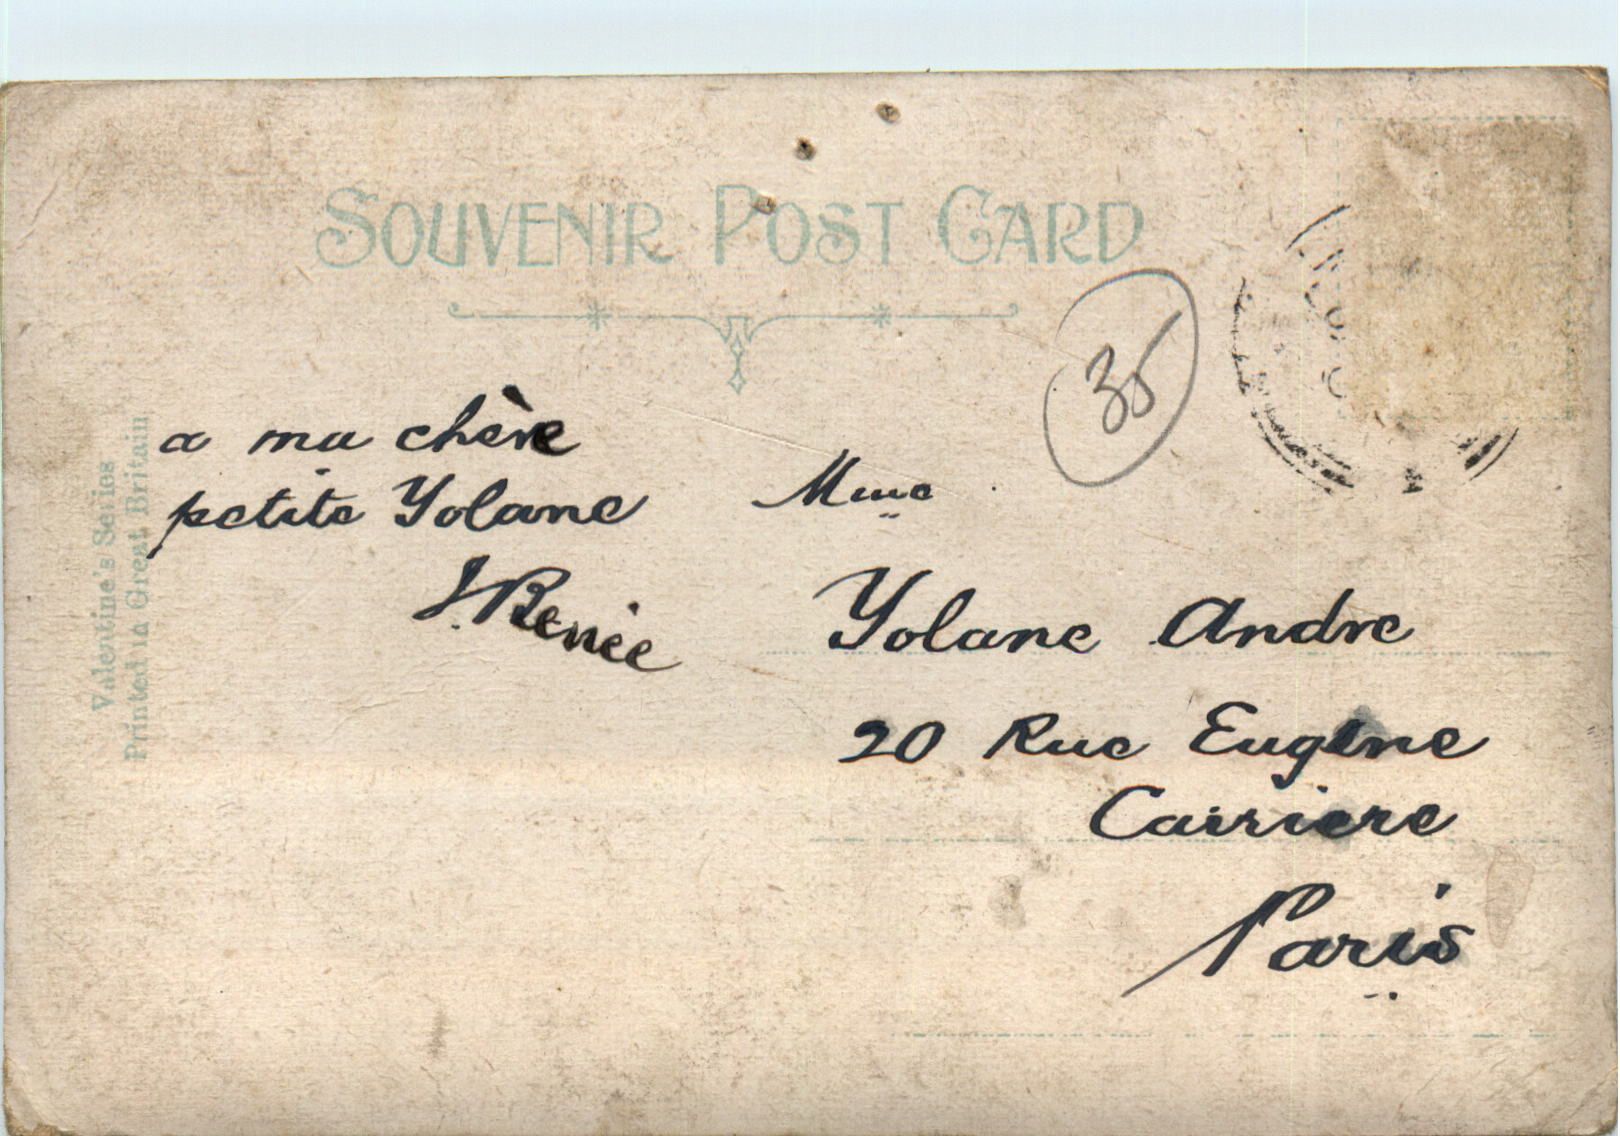 SOUVENIR POST CARD
35
a ma chère
petite Yolane
J. Renée
Mme
Yolane Andre
20 Rue Eugène
Carriere
Paris
Valentine's Series
Printed in Great Britain